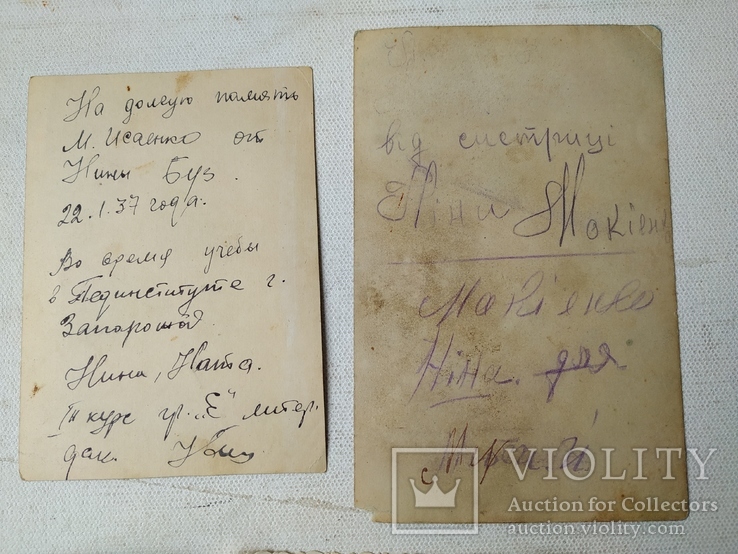 На долгую память
М. Исаенко от
Нины Буз.
22.1.37 года.
Во время учебы
в Пединституте г.
Запорожья
Нина, Ната.
III курс гр. „Е" литер.
фак.
від систриці
Ніни Мокіен
Мокіенко
Ніна для
VIOLITY
Auction for Collectors
auction.violity.com